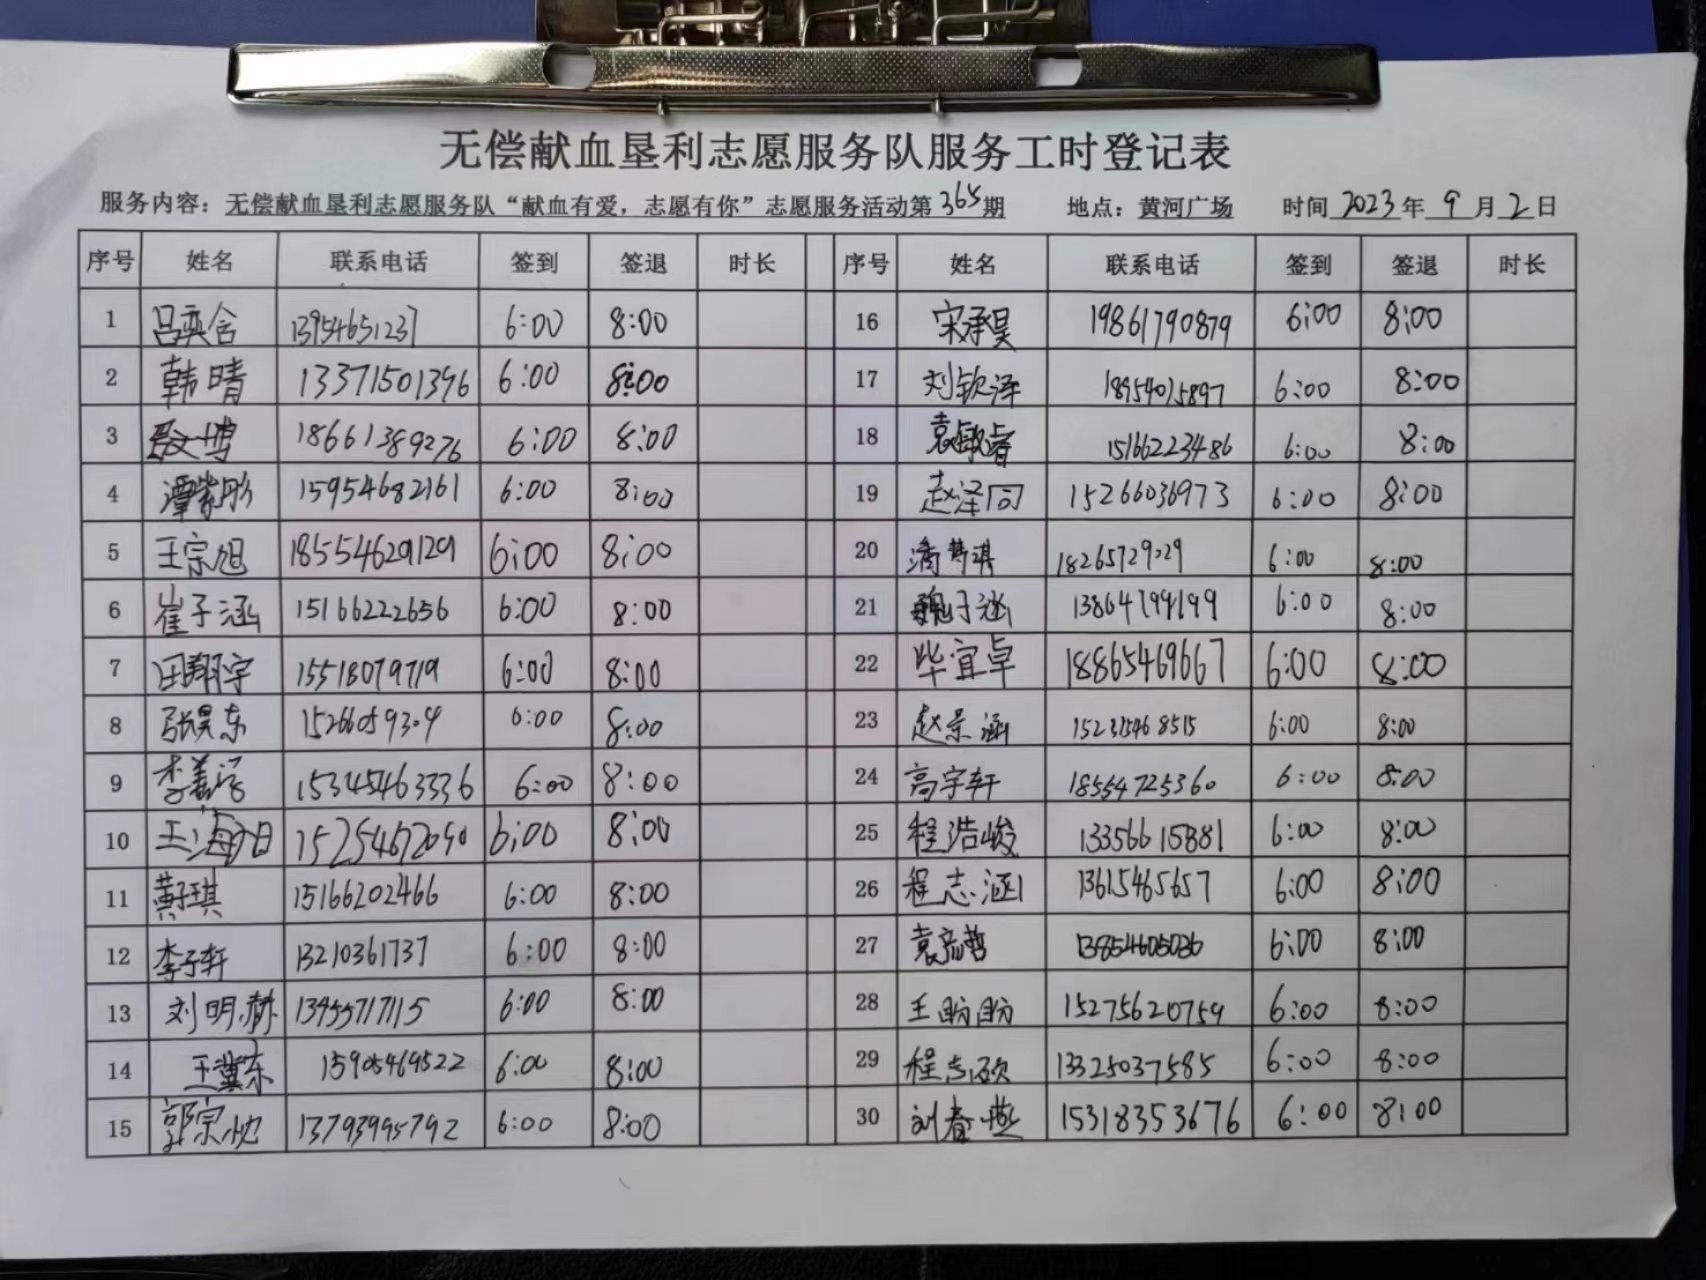 无偿献血垦利志愿服务队服务工时登记表
服务内容：无偿献血垦利志愿服务队“献血有爱，志愿有你”志愿服务活动第365期 地点：黄河广场 时间 2023 年 9 月 2 日
序号 姓名 联系电话 签到 签退 时长 序号 姓名 联系电话 签到 签退 时长
1 吕奕含 13954651237 6:00 8:00 16 宋承昊 19861790879 6:00 8:00
2 韩晴 13371501396 6:00 8:00 17 刘钦泽 18954015897 6:00 8:00
3 18661389276 6:00 8:00 18 袁敏睿 15166223486 6:00 8:00
4 谭紫彤 15954682161 6:00 8:00 19 赵泽同 15266036973 6:00 8:00
5 王宗旭 18554629129 6:00 8:00 20 18265729029 6:00 8:00
6 崔子涵 15166222656 6:00 8:00 21 魏子涵 13864799199 6:00 8:00
7 田翔宇 15518079719 6:00 8:00 22 毕宜卓 18865469667 6:00 8:00
8 张昊东 15266059304 6:00 8:00 23 赵景涵 152315468515 6:00 8:00
9 15345463336 6:00 8:00 24 高宇轩 18554725360 6:00 8:00
10 15254672090 6:00 8:00 25 程浩峻 13356615881 6:00 8:00
11 黄子琪 15166202466 6:00 8:00 26 程志涵 13615465657 6:00 8:00
12 李子轩 13210361737 6:00 8:00 27 袁彦哲 13854605036 6:00 8:00
13 刘明赫 13455717115 6:00 8:00 28 王盼盼 15275620759 6:00 8:00
14 王冀东 15905469522 6:00 8:00 29 程志硕 13325037585 6:00 8:00
15 郭宗忱 13793995792 6:00 8:00 30 刘春燕 15318353676 6:00 8:00